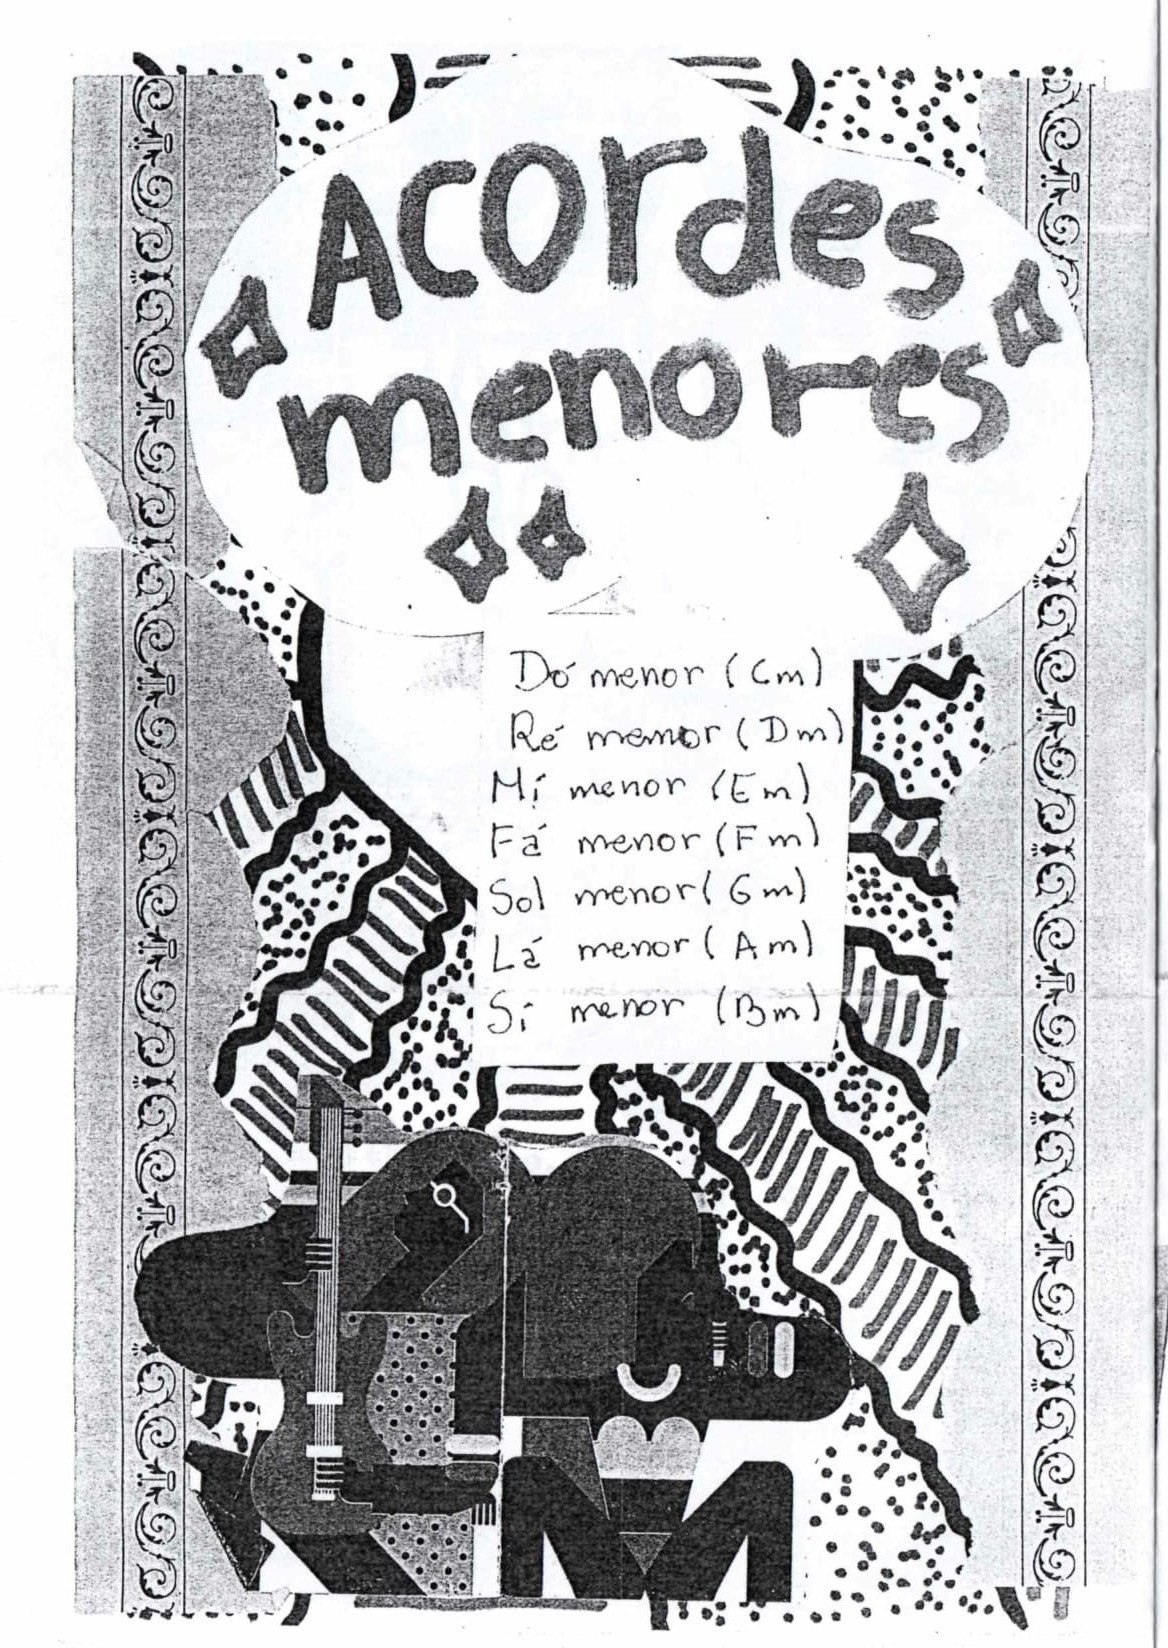 Acordes
menores
Dó menor (Cm)
Ré memor (Dm)
Mí menor (Em)
Fá menor (Fm)
Sol menor (Gm)
Lá menor (Am)
Si menor (Bm)